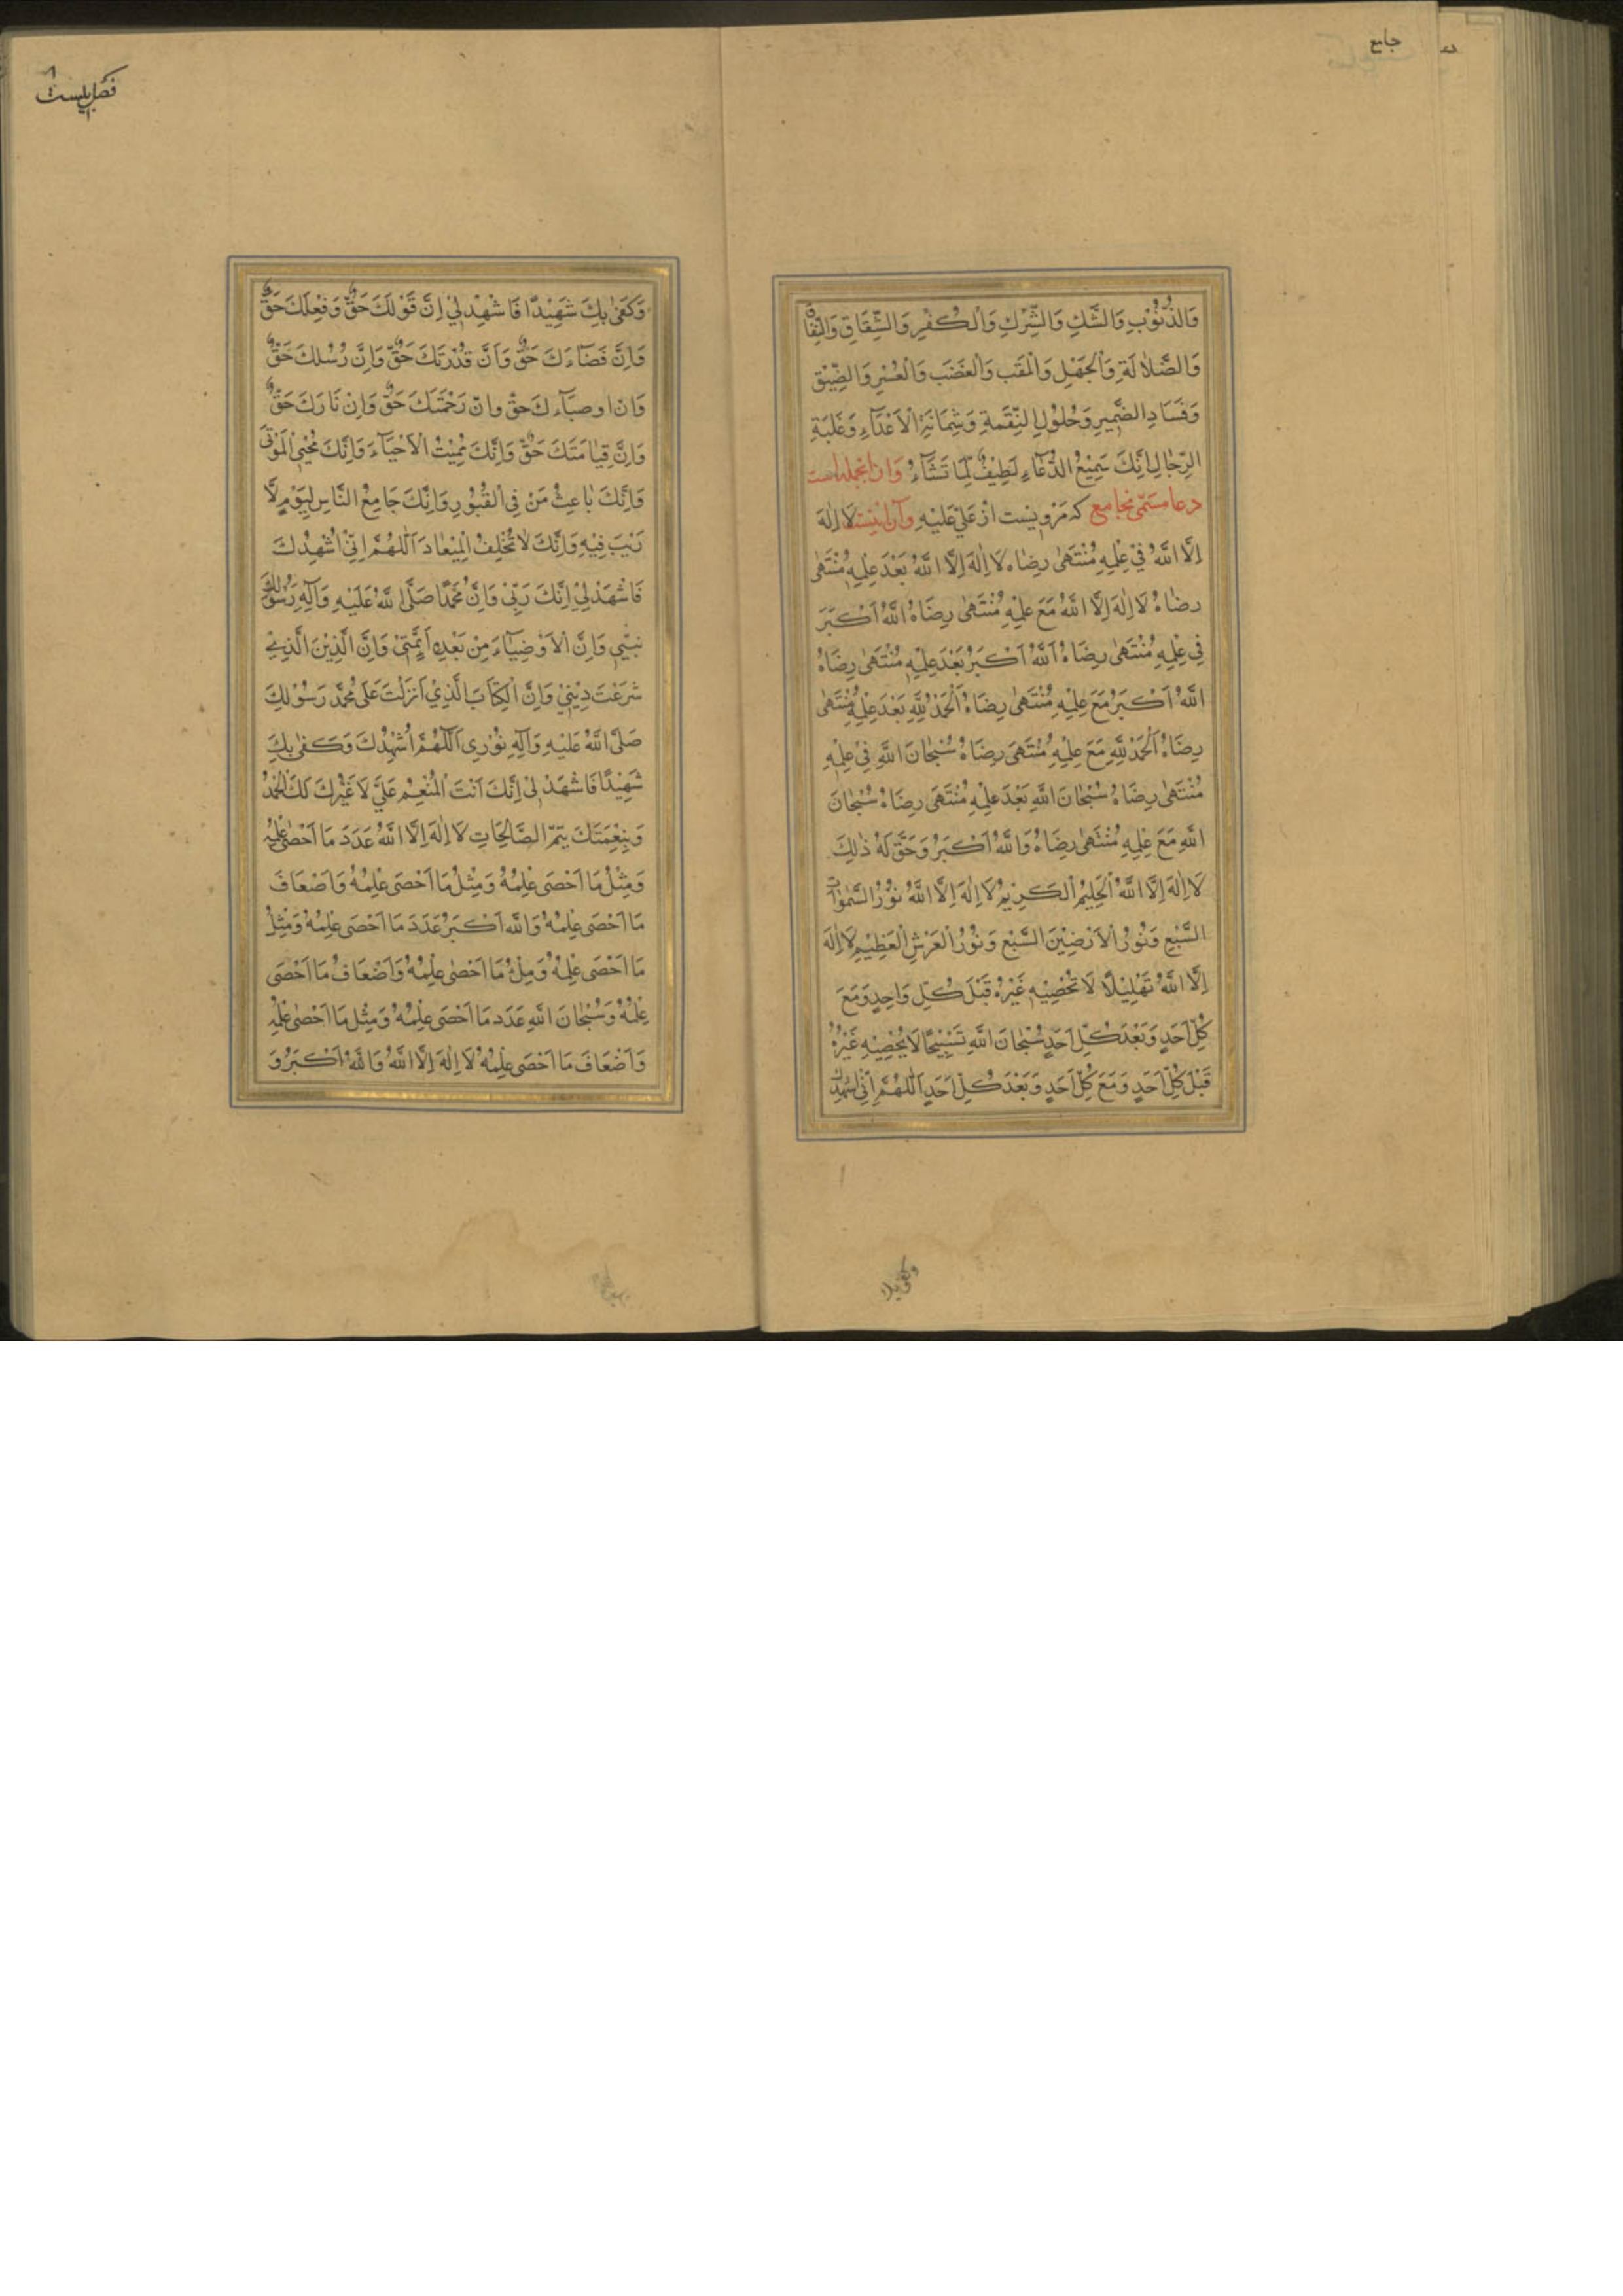 جامع
وَالذُّنُوْبِ وَالشَّكِ وَالشِّرْكِ وَالْكُفْرِ وَالشِّقَاقِ وَالنِّفَاقِ
وَالضَّلٰالَةِ وَالْجَهْلِ وَالْمَقَبِ وَالْغَضَبَ وَالْعُسْرِ وَالضِّيْقِ
وَفَسَادِ الضَّمِيرِ وَحُلُوْلِ النِّقْمَةِ وَشِمَاتَةِ الْاَعْدَآءِ وَغَلَبَةِ
الرِّجٰالِ اِنَّكَ سَمِيْعُ الدُّعَآءِ لَطِيْفٌ لِّمَا تَشَآءُ وَ ازانجمله است
دعا مسمّى بجامع كه مرويست از عَلِيّ عَلَيْهِ وآن اينست لَا اِلٰهَ
اِلَّا اللهُ فِيْ عِلْمِهٖ مُنْتَهٰى رِضٰاهُ لَا اِلٰهَ اِلَّا اللهُ بَعْدَ عِلْمِهٖ مُنْتَهٰى
رِضٰاهُ لَا اِلٰهَ اِلَّا اللهُ مَعَ عِلْمِهٖ مُنْتَهٰى رِضَاهُ اَللهُ اَكْبَرَ
فِي عِلْمِهٖ مُنْتَهٰى رِضَاهُ اَللهُ اَكْبَرُ بَعْدَ عِلْمِهٖ مُنْتَهٰى رِضَاهُ
اللهُ اَكْبَرُ مَعَ عِلْمِهٖ مُنْتَهٰى رِضَاهُ اَلْحَمْدُ لِلّٰهِ بَعْدَ عِلْمِهٖ مُنْتَهٰى
رِضَاهُ اَلْحَمْدُ لِلّٰهِ مَعَ عِلْمِهٖ مُنْتَهَى رِضَاهُ سُبْحٰانَ اللهِ فِيْ عِلْمِهٖ
مُنْتَهٰى رِضَاهُ سُبْحٰانَ اللهِ بَعْدَ عِلْمِهٖ مُنْتَهَى رِضَاهُ سُبْحٰانَ
اللهِ مَعَ عِلْمِهٖ مُنْتَهٰى رِضَاهُ وَاللهُ اَكْبَرُ وَحَقَّ لَهُ ذٰلِكَ
لَا اِلٰهَ اِلَّا اللهُ الْحَلِيْمُ الْكَرِيْمُ لَا اِلٰهَ اِلَّا اللهُ نُوْرُ السَّمٰوَاتِ
السَّبْعِ وَنُوْرُ الْاَرَضِيْنَ السَّبْعِ وَنُوْرُ الْعَرْشِ الْعَظِيْمِ لَا اِلٰهَ
اِلَّا اللهُ تَهْلِيْلًا لَا تُحْصِيْهِ غَيْرُهُ قَبْلَ كُلِّ وَاحِدٍ وَمَعَ
كُلِّ اَحَدٍ وَبَعْدَ كُلِّ اَحَدٍ سُبْحٰانَ اللهِ تَسْبِيْحًا لَا يُحْصِيْهِ غَيْرُهُ
قَبْلَ كُلِّ اَحَدٍ وَمَعَ كُلِّ اَحَدٍ وَبَعْدَ كُلِّ اَحَدٍ اَللّٰهُمَّ اِنِّي اُشْهِدُكَ
وَكَفٰى بِكَ شَهِيْدًا فَاشْهِدْ لِيْ اِنَّ قَوْلَكَ حَقٌّ وَفِعْلَكَ حَقٌّ
وَاِنَّ قَضَآءَكَ حَقٌّ وَاَنَّ قُدْرَتَكَ حَقٌّ وَاِنَّ رُسُلَكَ حَقٌّ
وَاِنَّ اوصيٰآءَكَ حقٌّ وانّ رَحْمَتَكَ حَقٌّ وَاِنَّ نَارَكَ حَقٌّ
وَاِنَّ قِيٰامَتَكَ حَقٌّ وَاِنَّكَ مُمِيْتُ الْاَحْيَآءَ وَاِنَّكَ مُحْيِي الْمَوْتٰى
وَاِنَّكَ بٰاعِثُ مَنْ فِي الْقُبُوْرِ وَاِنَّكَ جَامِعُ النَّاسِ لِيَوْمٍ لَّا
رَيْبَ فِيْهِ وَاِنَّكَ لَا تُخْلِفُ الْمِيْعٰادَ اَللّٰهُمَّ اِنِّيْ اُشْهِدُكَ
فَاشْهَدْ لِيْ اِنَّكَ رَبِّيْ وَاِنَّ مُحَمَّدًا صَلَّى اللهُ عَلَيْهِ وَآلِهِ رَسُوْلُكَ
نَبِيِّي وَاِنَّ الْاَوْصِيَآءَ مِنْ بَعْدِهِ اَئِمَّتِيْ وَاِنَّ الَّذِيْنَ الَّذِيْ
شَرَعْتَ دِيْنِيْ وَاِنَّ الْكِتَابَ الَّذِيْ اَنْزَلْتَ عَلٰى مُحَمَّد رَسُوْلِكَ
صَلَّى اللهُ عَلَيْهِ وَآلِهِ نُوْرِي اَللّٰهُمَّ اُشْهِدُكَ وَكَفٰى بِكَ
شَهِيْدًا فَاشْهَدْ لِيْ اِنَّكَ اَنْتَ الْمُنْعِمُ عَلَيَّ لَا غَيْرُكَ لَكَ الْحَمْدُ
وَبِنِعْمَتِكَ يَتِمّ الصَّالِحَاتِ لَا اِلٰهَ اِلَّا اللهُ عَدَدَ مَا اَحْصٰى عِلْمُهُ
وَمِثْلُ مَا اَحْصَى عِلْمُهُ وَمِثْلُ مَا اَحْصَى عِلْمُهُ وَاَضْعَافَ
مَا اَحْصَى عِلْمُهُ وَاللهُ اَكْبَرُ عَدَدَ مَا اَحْصَى عِلْمُهُ وَمِثْلُ
مَا اَحْصَى عِلْمُهُ وَمِلْءُ مَا اَحْصٰى عِلْمُهُ وَاَضْعَافُ مَا اَحْصَى
عِلْمُهُ وَسُبْحٰانَ اللهِ عَدَد مَا اَحْصَى عِلْمُهُ وَمِثْل مَا اَحْصٰى عِلْمُهُ
وَاَضْعَافَ مَا اَحْصَى عِلْمُهُ لَا اِلٰهَ اِلَّا اللهُ وَاللهُ اَكْبَرُ وَ